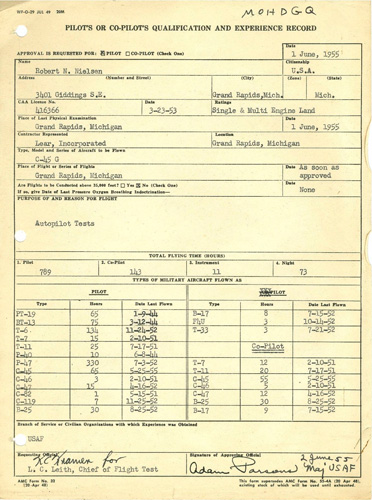 WF-O-29 JUL 49 200M
MOHDGQ
PILOT'S OR CO-PILOT'S QUALIFICATION AND EXPERIENCE RECORD
APPROVAL IS REQUESTED FOR: PILOT CO-PILOT (Check One)
Date
1 June, 1955
Name
Robert N. Nielsen
Citizenship
U.S.A.
Address (Number and Street) (City) (Zone) (State)
3401 Giddings S.E. Grand Rapids, Mich. Mich.
CAA License No. Date Ratings
416366 3-23-53 Single & Multi Engine Land
Place of Last Physical Examination Date
Grand Rapids, Michigan 1 June, 1955
Contractor Represented Location
Lear, Incorporated Grand Rapids, Michigan
Type, Model and Series of Aircraft to be Flown
C-45 G
Place of Flight or Series of Flights Date As soon as
Grand Rapids, Michigan approved
Are Flights to be Conducted above 25,000 feet? Yes No (Check One) Date
If so, give Date of Last Pressure Oxygen Breathing Indoctrination— None
PURPOSE OF AND REASON FOR FLIGHT
Autopilot Tests
TOTAL FLYING TIME (HOURS)
1. Pilot 2. Co-Pilot 3. Instrument 4. Night
789 143 11 73
TYPES OF MILITARY AIRCRAFT FLOWN AS
PILOT
Type Hours Date Last Flown Type Hours Date Last Flown
PT-19 65 1-9-44 B-17 8 7-15-52
BT-13 75 3-12-44 F4U 3 10-14-52
T-6 134 11-24-52 T-33 3 7-21-52
T-7 15 2-10-51
T-11 25 7-17-51 Co-Pilot
P-40 10 6-8-44
P-47 330 7-3-52 T-7 12 2-10-51
C-45 65 5-25-55 T-11 20 7-17-51
C-46 3 2-10-51 C-45 55 5-25-55
C-47 15 4-16-52 C-46 5 2-10-51
C-82 1 5-15-51 C-47 12 4-16-52
C-119 7 11-25-52 B-17 9 7-15-52
B-25 30 8-25-52 B-25 30 8-25-52
Branch of Service or Civilian Organizations with which Experience was Obtained
USAF
Signature of Approving Official Date
for
L. C. Leith, Chief of Flight Test
Adam Parsons Maj USAF
2 June 55
AMC Form No. 52
(20 Apr 48)
This form supersedes AMC Form No. 55-AA (20 Apr 48),
existing stock of which will be used until exhausted.